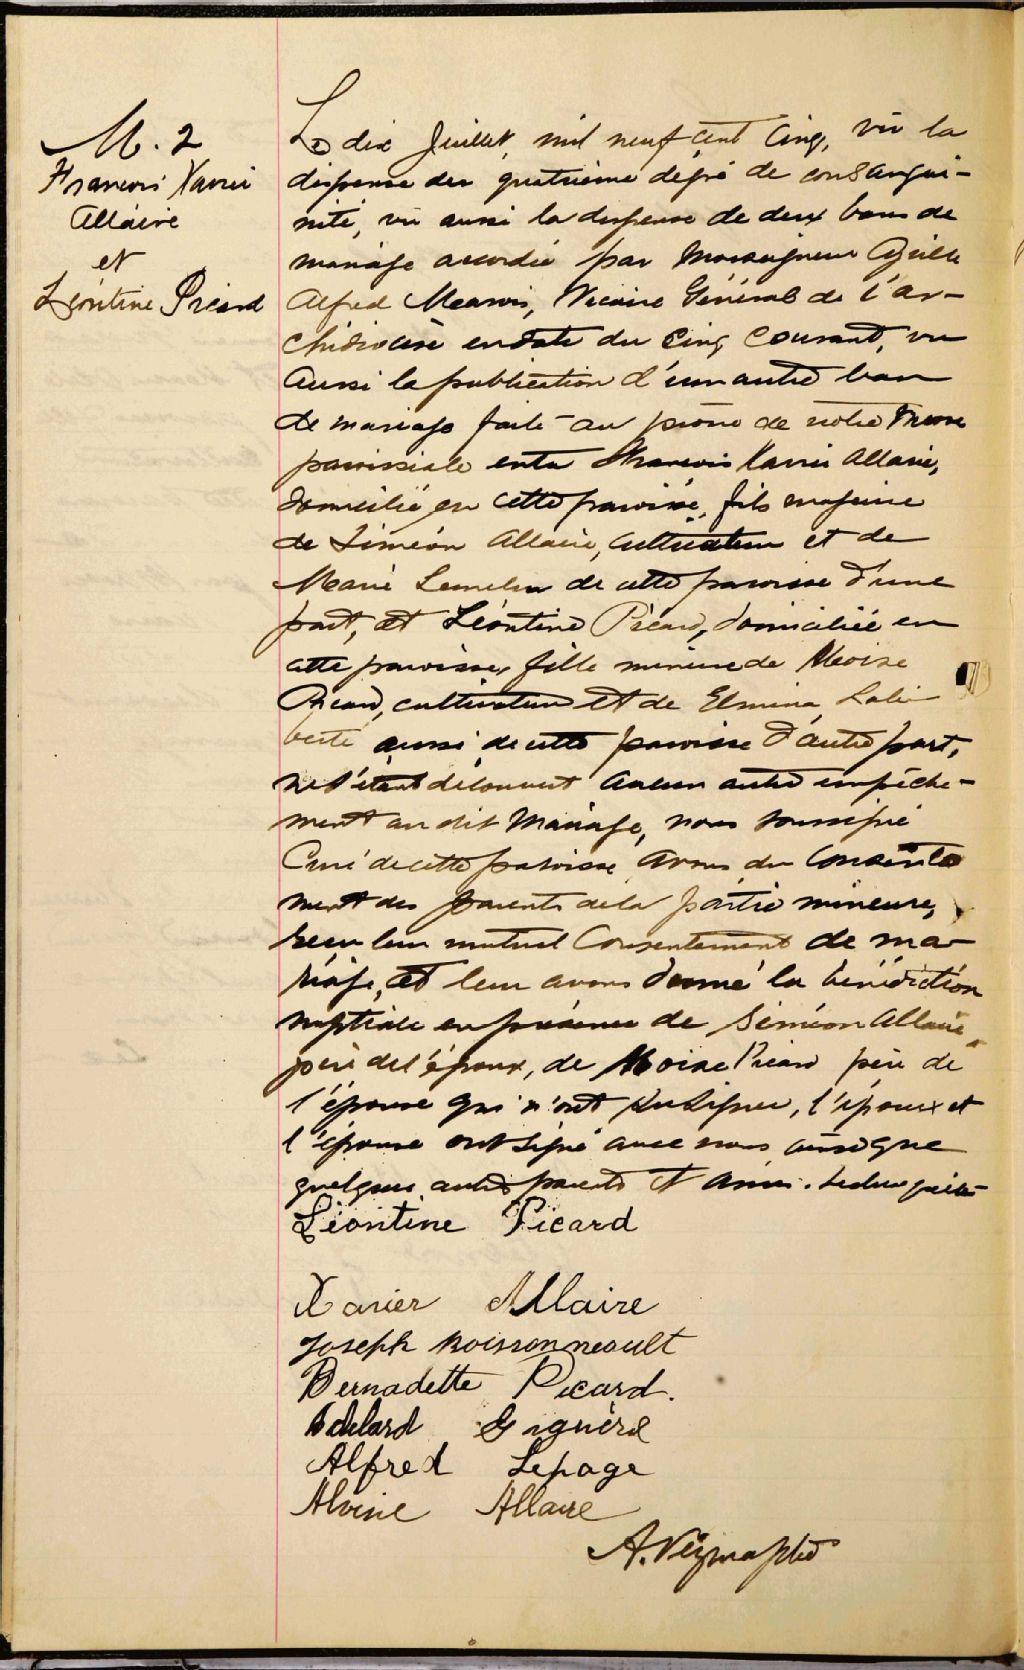 M. 2
François Xavier
Allaire
et
Léontine Picard
Le dix Juillet, mil neuf cent cinq, vu la
dispense du quatrième dégré de consangui-
nité, vu aussi la dispense de deux bans de
mariage accordée par Monseigneur Cyrille
Alfred Marois, Vicaire Général de l'ar-
chidiocèse en date du cinq courant, vu
aussi la publication d'un autre ban
de mariage faite au prône de notre Messe
paroissiale entre François Xavier Allaire,
domicilié en cette paroisse, fils majeur
de Siméon Allaire, cultivateur et de
Marie Lemelin de cette paroisse d'une
part, et Léontine Picard, domiciliée en
cette paroisse, fille mineure de Moise
Picard, cultivateur et de Elmina Lali-
berté aussi de cette paroisse d'autre part,
ne s'étant découvert aucun autre empêche-
ment au dit Mariage, nous soussigné
Curé de cette paroisse avons du consente
ment des parents de la partie mineure,
reçu leur mutuel consentement de ma-
riage, et leur avons donné la bénédiction
nuptiale en présence de Siméon Allaire
père de l'époux, de Moise Picard père de
l'épouse qui n'ont su signer, l'époux et
l'épouse ont signé avec nous ainsi que
quelques autres parents et amis. Lecture faite
Léontine Picard
Xavier Allaire
Joseph Boissonneault
Bernadette Picard.
Adelard Giguère
Alfred Lepage
Alvine Allaire
A. Ptre